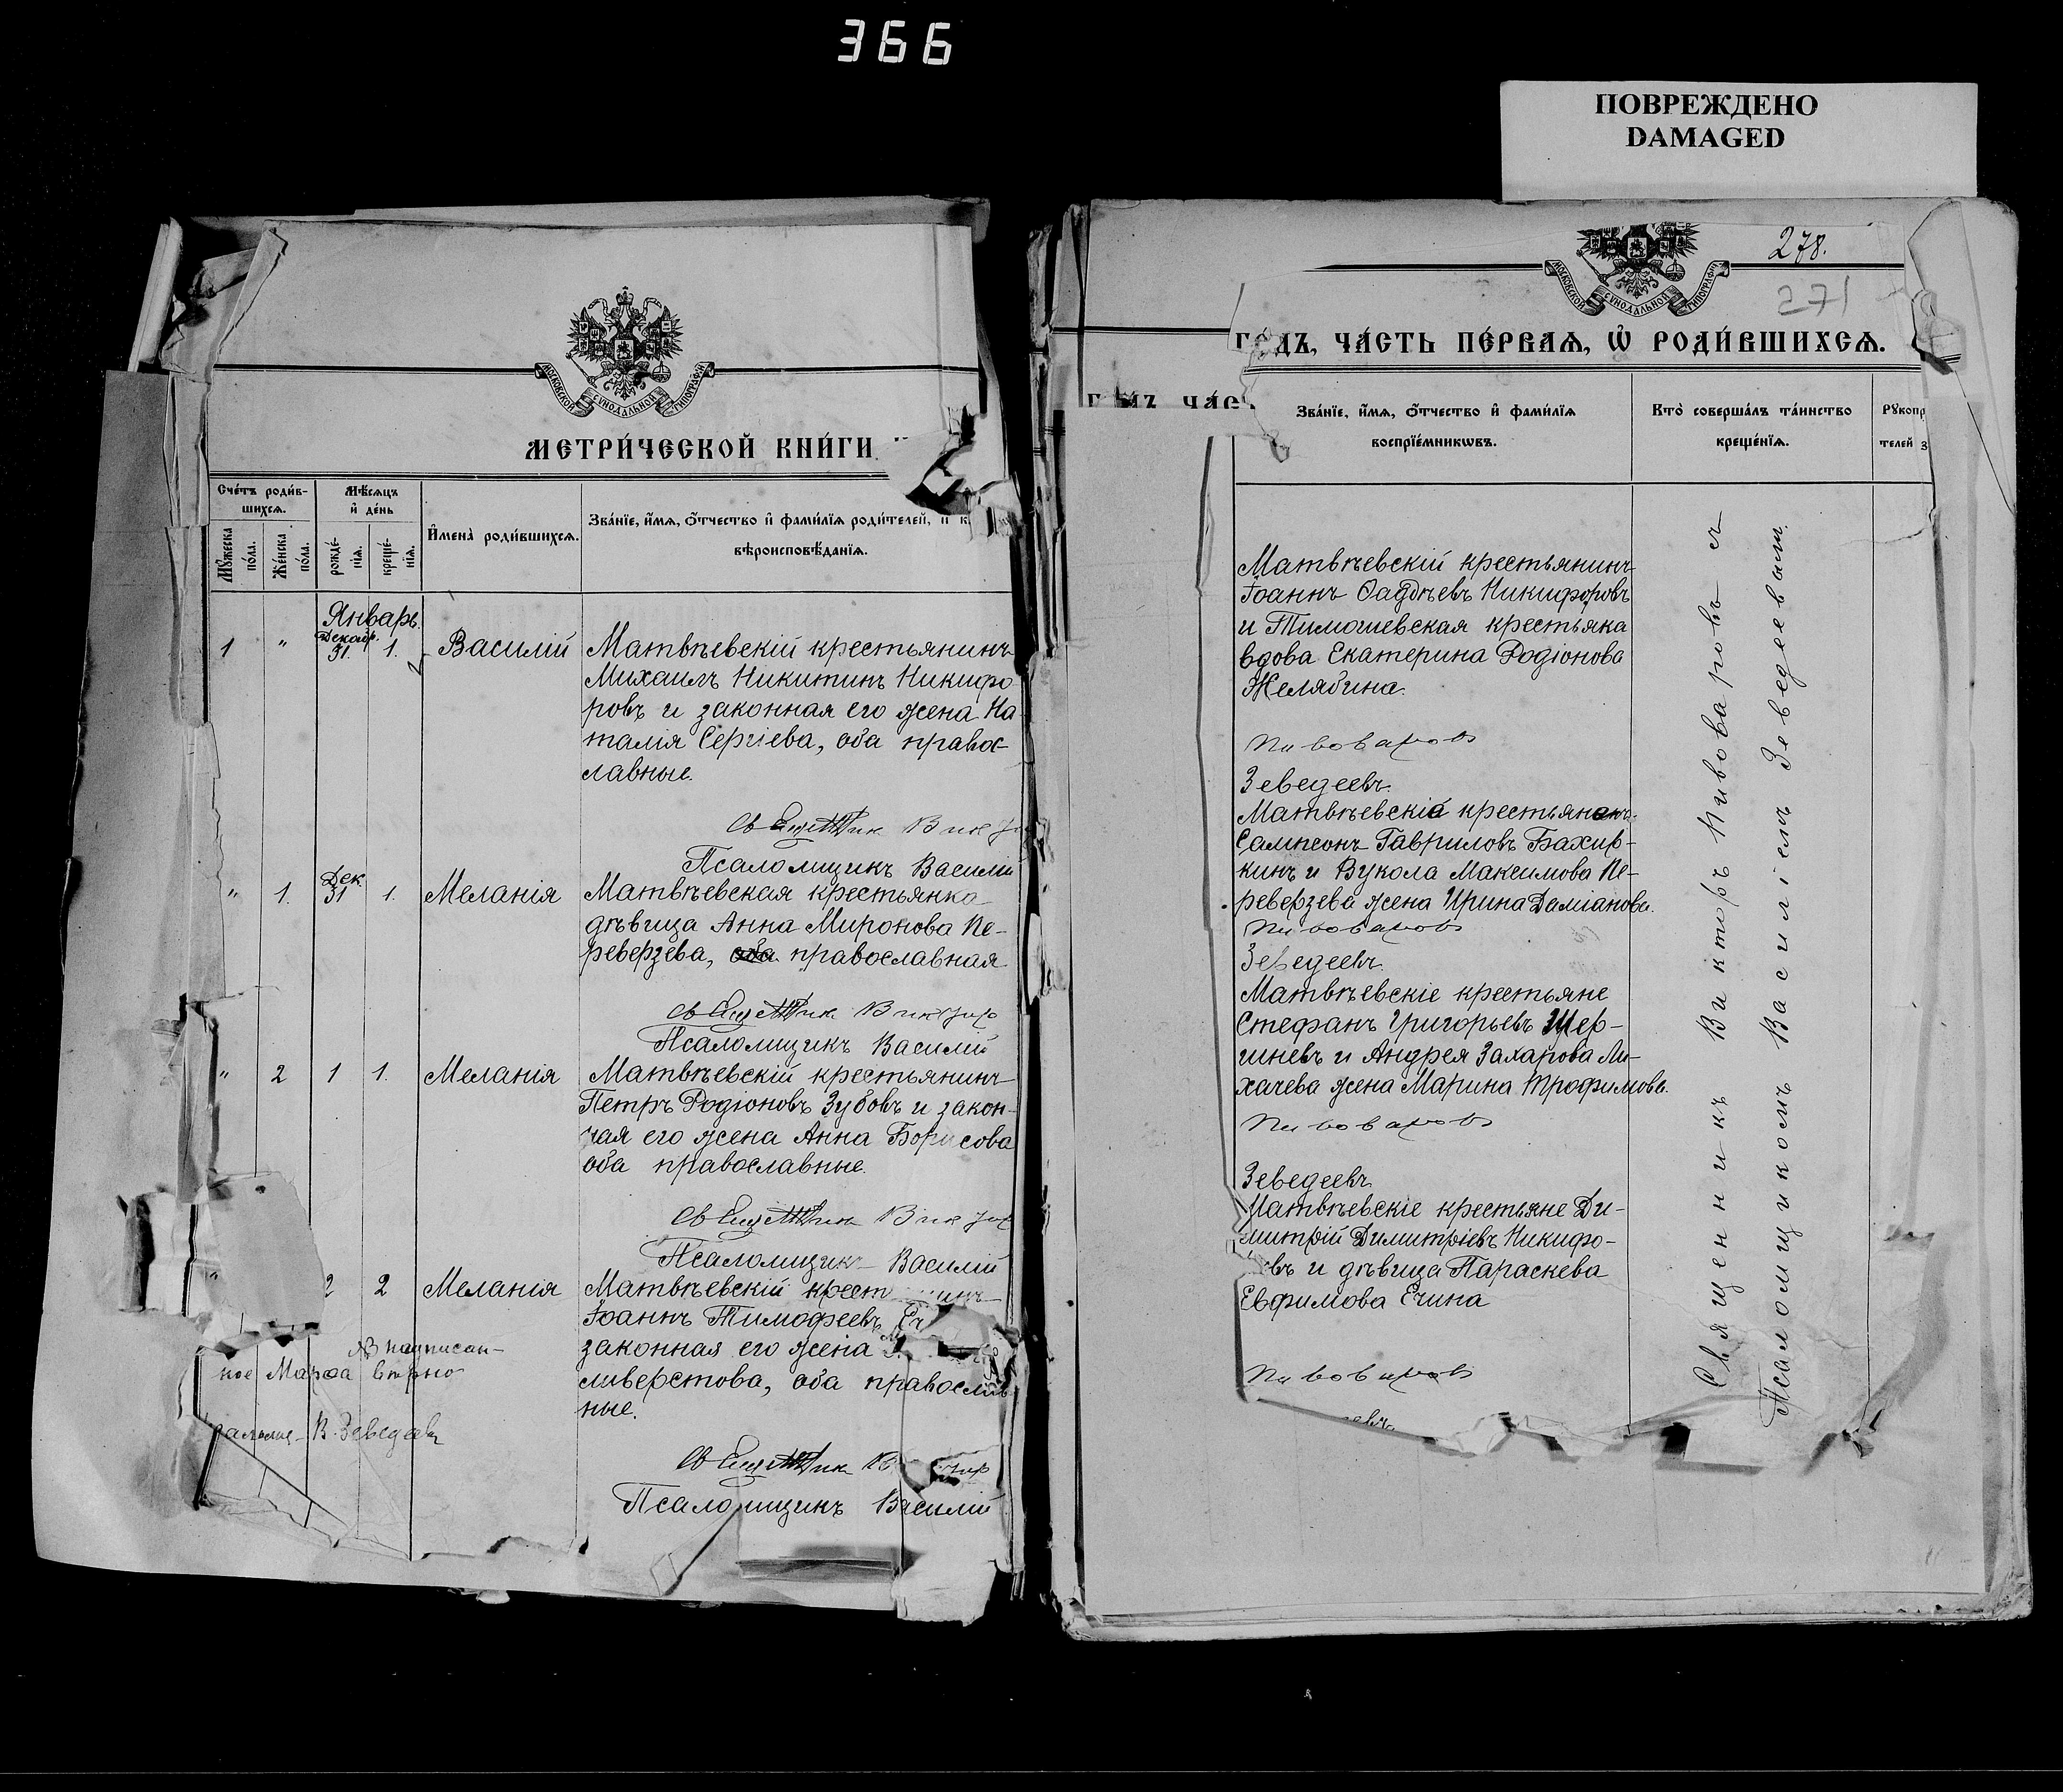 366
ПОВРЕЖДЕНО
DAMAGED
МОСКОВСКОЙ СѴНОДАЛЬНОЙ ТИПОГРАФІИ
МЕТРИ́ЧЕСКОЙ КНИ́ГИ
Сче́тъ роди́в-
шихсѧ.
Мѣ́сѧцъ
и҆ де́нь
Мꙋ́жеска
по́ла.
Же́нска
по́ла.
рожде́-
нїѧ.
креще́-
нїѧ.
И҆мена̀ роди́вшихсѧ.
Зва́нїе, и҆́мѧ, ѻ҆́тчество и҆ фами́лїѧ роди́телей, и҆ к
вѣроисповѣ́данїѧ.
Январь.
1 " Декабр. 31. 1. Василій
Матвѣевскій крестьянинъ
Михаилъ Никитинъ Никифо
ровъ и законная его жена На
талія Сергіева, оба правос-
лавные.
Священник Виктор
Псаломщикъ Василій
" 1. Дек 31 1. Меланія
Матвѣевская крестьянка
дѣвица Анна Миронова Пе-
реверзева, оба православная
Священник Виктор
Псаломщикъ Василій
" 2 1 1. Меланія
Матвѣевскій крестьянинъ
Петръ Родіоновъ Зубовъ и закон-
ная его жена Анна Борисова
оба православные.
Священник Виктор
Псаломщикъ Василій
" 2 2 Меланія
Матвѣевскій крест инъ
Іоаннъ Тимофеевъ
законная его жена
ливерстова, оба православ
ные.
надписан-
ное Марѳа вѣрно
В. Зеведеевъ
Священник
Псаломщикъ Василій
278.
271
МОСКОВСКОЙ СѴНОДАЛЬНОЙ ТИПОГРАФІИ
ГО́ДЪ, ЧА́СТЬ ПЕ́РВАѦ, Ѽ РОДИ́ВШИХСѦ.
Зва́нїе, и҆́мѧ, ѻ҆́тчество и҆ фами́лїѧ
воспрїе́мникѡвъ.
Кто̀ соверша́лъ та́инство
креще́нїѧ.
Рꙋкопр
телей з
Матвѣевскій крестьянинъ
Іоаннъ Ѳаддѣевъ Никифоровъ
и Тимошевская крестьяка
вдова Екатерина Родіонова
Желябина.
Пивоваровъ
Зеведеевъ.
Матвѣевскіе крестьянинъ
Сампсонъ Гавриловъ Бахир-
кинъ и Вукола Максимова Пе-
реверзева жена Ирина Даміанова.
Пивоваровъ
Зеведеевъ.
Матвѣевскіе крестьяне
Стефанъ Григорьевъ Щер-
шневъ и Андрея Захарова Ли-
хачева жена Марина Трофимова.
Пивоваровъ
Зеведеевъ
Матвѣевскіе крестьяне Ди-
митрій Димитріевъ Никифо-
овъ и дѣвица Параскева
Евфимова Ечина
Пивоваровъ
Священникъ Викторъ Пивоваровъ съ
Псаломщикомъ Василіемъ Зеведеевымъ.